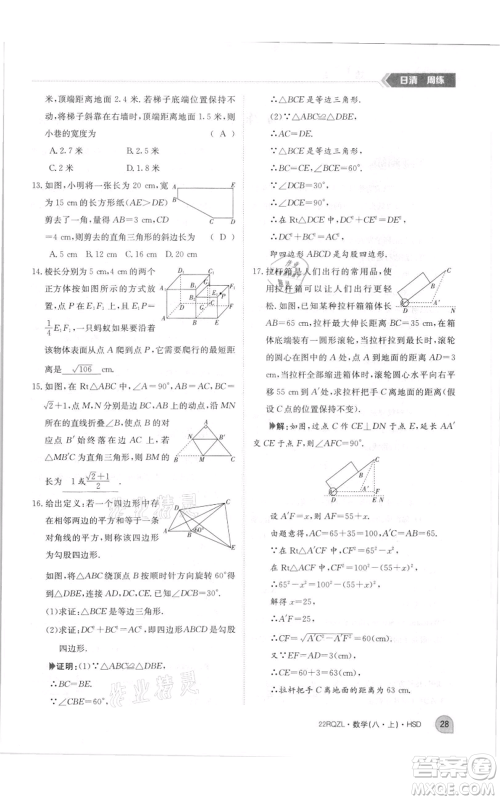 日清 周练
米,顶端距离地面 2.4 米.若梯子底端位置保持不
动,将梯子斜靠在右墙时,顶端距离地面 1.5 米,则
小巷的宽度为 ( A )
A. 2.7 米 B. 2.5 米
C. 2 米 D. 1.8 米
13. 如图,小明将一张长为 20 cm,
宽为 15 cm 的长方形纸(AE>DE)
剪去了一角,量得 AB=3 cm,CD
=4 cm,则剪去的直角三角形的斜边长为 ( D )
A. 5 cm B. 12 cm C. 16 cm D. 20 cm
14. 棱长分别为 5 cm,4 cm 的两个
正方体如图放置,点 A,B,E₁
在同一直线上,顶点 G 在棱 BC
上,点 P 在 E₁F₁ 上,且 E₁P=
1/4 E₁F₁,一只蚂蚁如果要沿着
该物体表面从点 A 爬到点 P,需要爬行的最短距
离是 √106 cm.
15. 如图,在 Rt△ABC 中,∠A=90°,AB=AC,BC=
√2+1,点 M,N 分别是边 BC,AB 上的动点,沿 MN
所在的直线折叠∠B,使点 B 的对
应点 B′始终落在边 AC 上.若
△MB′C 为直角三角形,则 BM 的
长为 1 或 (√2+1)/2 .
16. 给出定义,若一个四边形中存
在相邻两边的平方和等于一条
对角线的平方,则称该四边形
为勾股四边形.
如图,将△ABC 绕顶点 B 按顺时针方向旋转 60°得
到△DBE,连接 AD,DC,CE,已知∠DCB=30°.
(1)求证:△BCE 是等边三角形;
(2)求证:DC²+BC²=AC²,即四边形 ABCD 是勾股
四边形.
证明:(1)∵△ABC≌△DBE,∴BC=BE.
∵∠CBE=60°,
∴△BCE 是等边三角形.
(2)∵△ABC≌△DBE,
∴AC=DE.
∵△BCE 是等边三角形,
∴BC=CE,∠BCE=60°.
∵∠DCB=30°,
∴∠DCE=90°.
∴在 Rt△DCE 中,
DC²+CE²=DE².
∴DC²+BC²=AC²,
即四边形 ABCD 是勾股四边形.
17. 拉杆箱是人们出行的常用品,使
用拉杆箱可以让人们出行更轻
松.如图,已知某种拉杆箱箱体长
AB=65 cm,拉杆最大伸长距离 BC=35 cm,在箱
体底端装有一圆形滚轮,当拉杆拉到最长时,滚轮
的圆心在图中的点 A 处,点 A 到地面的距离 AD=
3 cm,当拉杆全部缩进箱体时,滚轮圆心水平向右
平移 55 cm 到 A′处,求拉杆把手 C 离地面的距离(假
设 C 点的位置保持不变).
解:如图,过点 C 作 CE⊥DN 于点 E,延长 AA′
交 CE 于点 F,则∠AFC=90°.
设 A′F=x cm,则 AF=(55+x) cm,
由题意易得,AC=65+35=100(cm),A′C=65 cm.
∵在 Rt△A′CF 中,CF²=65²−x²,
在 Rt△ACF 中,CF²=100²−(55+x)²,
∴65²−x²=100²−(55+x)²,
解得 x=25.
∴A′F=25 cm.
∴CF=√(A′C²−A′F²)=60(cm).
又∵EF=AD=3 cm,
∴CE=60+3=63(cm).
∴拉杆把手 C 离地面的距离为 63 cm.
22RQZL · 数学(八 · 上) · HSD 28